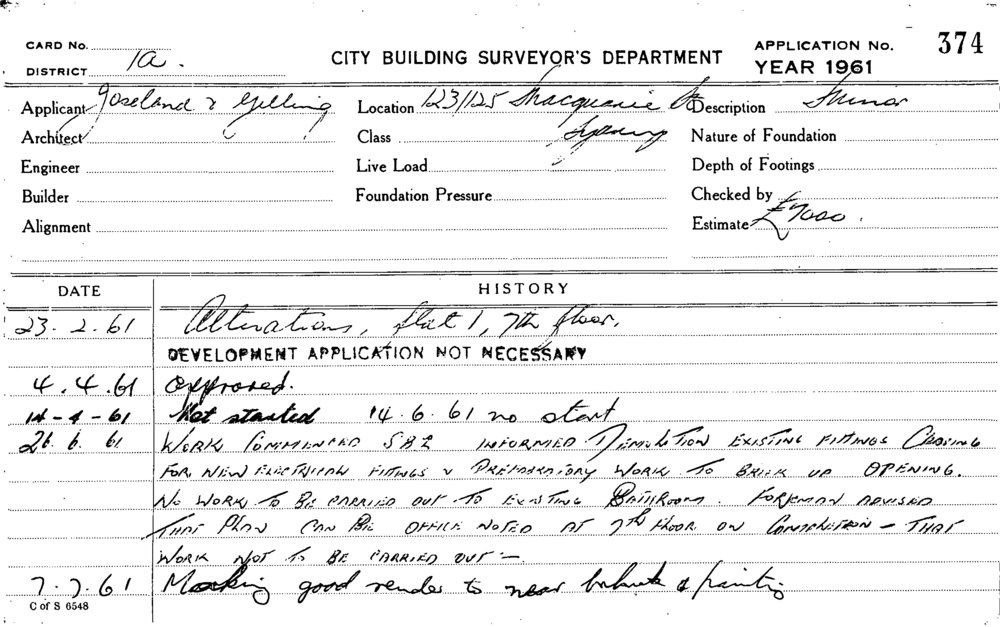 CARD No.
DISTRICT 1a.
CITY BUILDING SURVEYOR'S DEPARTMENT
APPLICATION No. 374
YEAR 1961
Applicant Joseland & Gilling Location 123/125 Macquarie St Description Minor
Architect Class Sydney Nature of Foundation
Engineer Live Load Depth of Footings
Builder Foundation Pressure Checked by
Alignment Estimate £7000.
DATE HISTORY
23.2.61 Alterations, flat 1, 7th floor.
DEVELOPMENT APPLICATION NOT NECESSARY
4.4.61 Approved.
14-4-61 Not started 14.6.61 no start
26.6.61 WORK COMMENCED INFORMED DEMOLITION EXISTING FITTINGS CHASING
FOR NEW ELECTRICAL FITTINGS & PREPARATORY WORK TO BRICK UP OPENING.
NO WORK TO BE CARRIED OUT TO EXISTING BATHROOM. FOREMAN ADVISED
THAT PLAN CAN BE OFFICE NOTED AT 7th FLOOR ON COMPLETION – THAT
WORK NOT TO BE CARRIED OUT –
7.7.61 Making good render to new & painting
C of S 6548